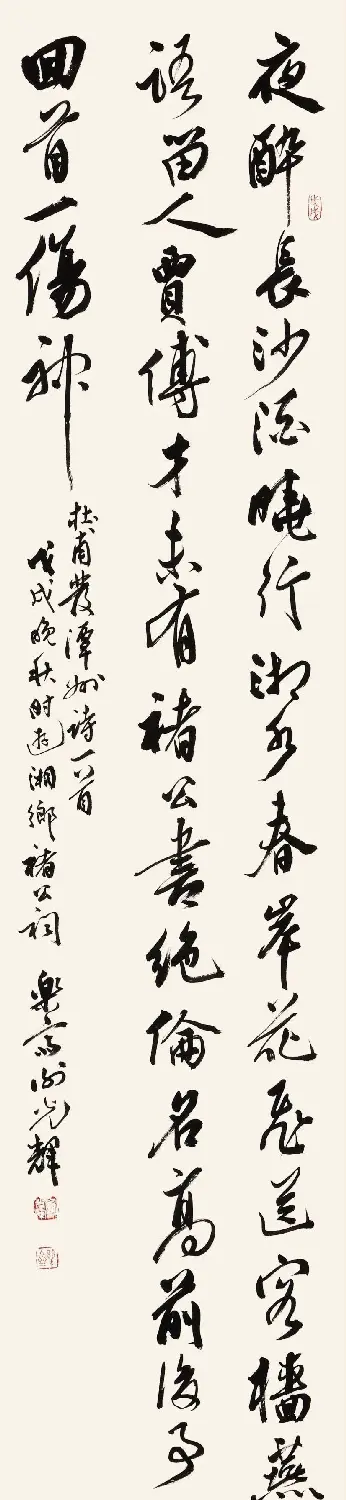 夜醉長沙酒曉行湘水春岸花飛送客檣燕
語留人賈傅才未有褚公書絶倫名高前後事
回首一傷神
杜甫發潭州诗一首
戊戌晚秋时遊湘鄉褚公祠 楽斋谢光輝